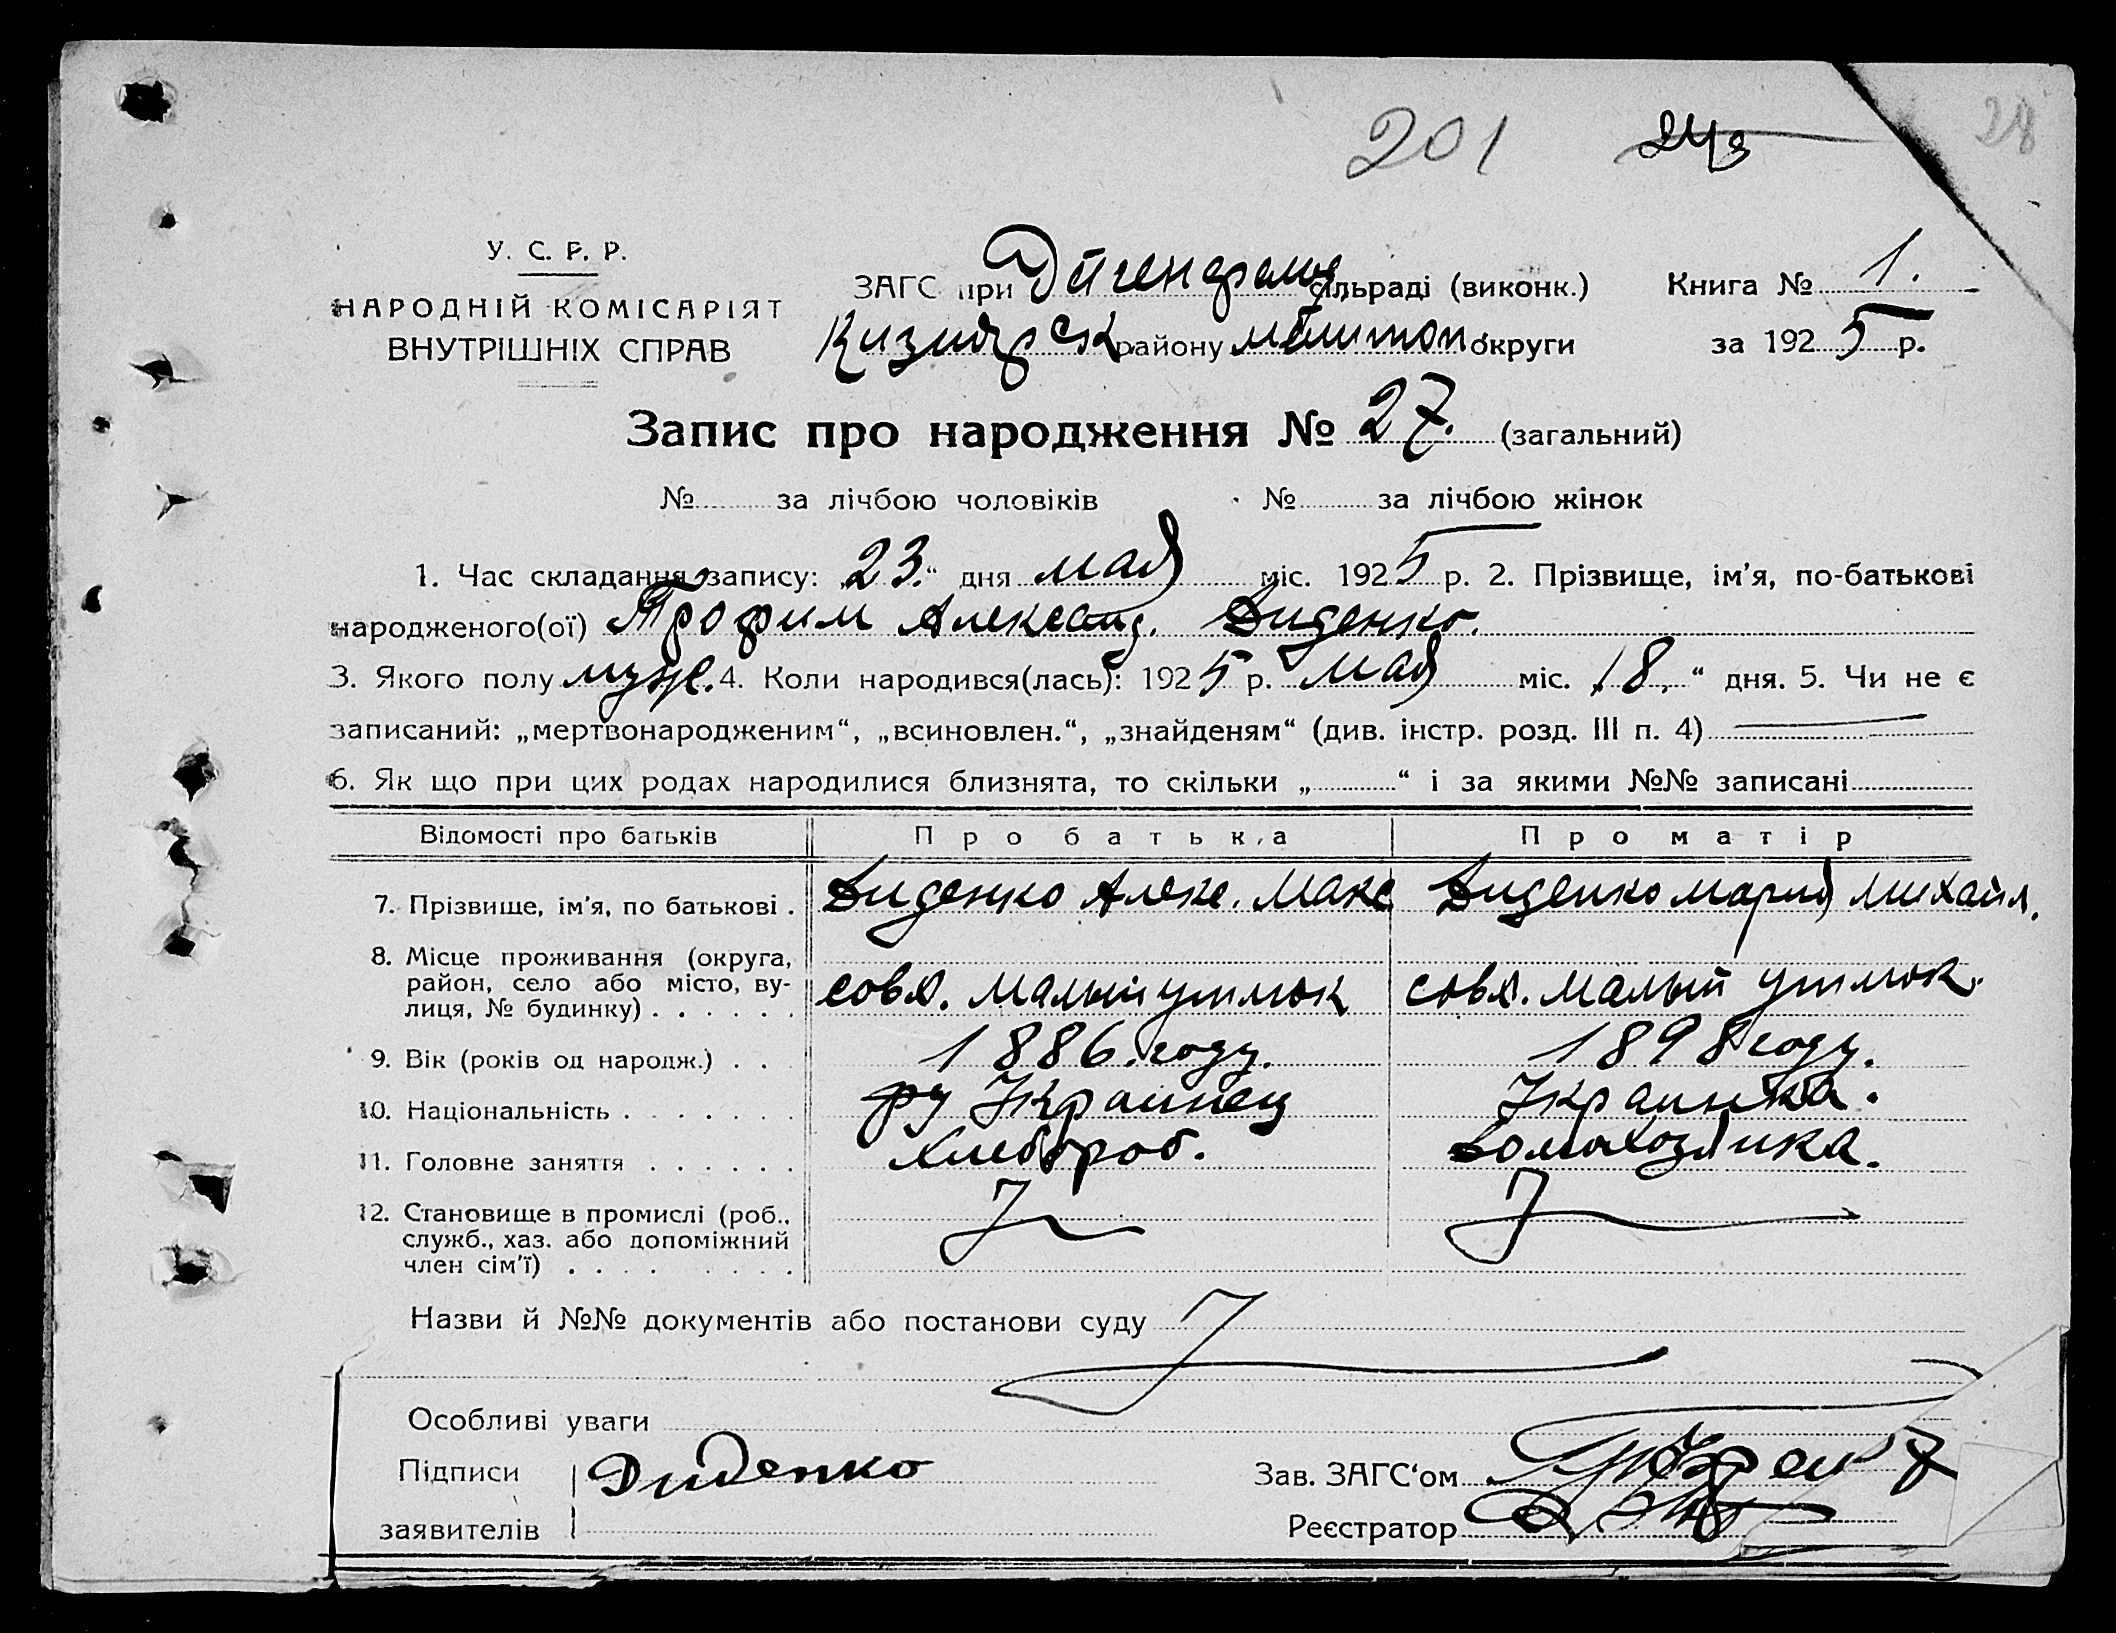 201
28
У. С. Р. Р.
НАРОДНІЙ КОМІСАРІЯТ
ВНУТРІШНІХ СПРАВ
ЗАГС при Эйгенфельд сільраді (виконк.) Книга № 1.
району Мелитоп округи за 1925 р.
Запис про народження № 27. (загальний)
№ за лічбою чоловіків № за лічбою жінок
1. Час складання запису: 23.“ дня мая міс. 1925 р. 2. Прізвище, ім’я, по-батькові
народженого(ої) Трофим Александ. Диденко.
3. Якого полу муж. 4. Коли народився(лась): 1925 р. мая міс. 18.“ дня. 5. Чи не є
записаний: „мертвонародженим“, „всиновлен.“, „знайденям“ (див. інстр. розд. III п. 4)
6. Як що при цих родах народилися близнята, то скільки „ “ і за якими №№ записані
Відомості про батьків Про батька Про матір
7. Прізвище, ім’я, по батькові . Диденко Алекс. Макс Диденко Мария Михайл.
8. Місце проживання (округа,
район, село або місто, ву-
лиця, № будинку) . . . . . . совх. Малый Утлюк совх. Малый Утлюк.
9. Вік (років од народж.) . . 1886 году. 1898 году.
10. Національність . . . . . . . Украинец Украинка.
11. Головне заняття . . . . . . Хлебороб. Домохозяйка.
12. Становище в промислі (роб.,
служб., хаз. або допоміжний
член сім’ї) . . . . . . . .
Назви й №№ документів або постанови суду
Особливі уваги
Підписи Диденко Зав. ЗАГС‘ом
заявителів Реєстратор